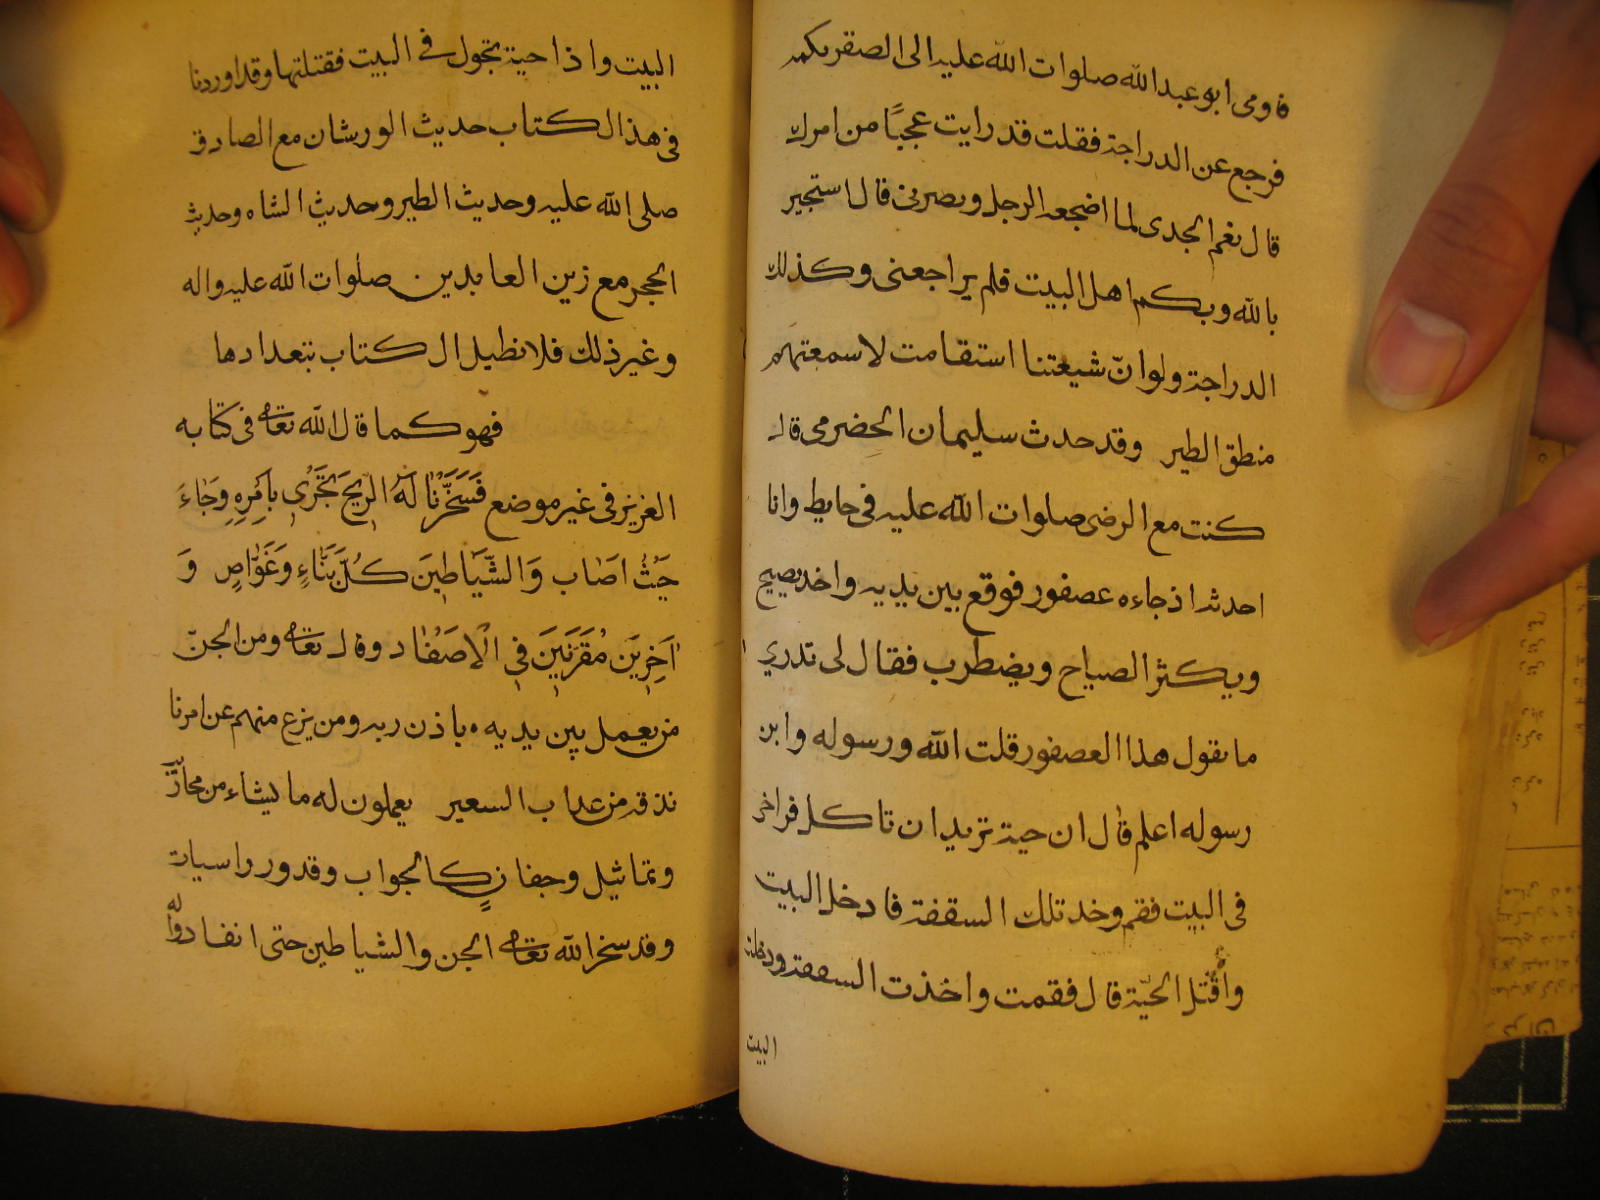 فاومى ابو عبد الله صلوات الله عليه الى الصقر بكمه
فرجع عن الدراجة فقلت قد رايت عجبًا من امرك
قال نعم الجدى لما اضجعه الرجل وبصرنى قال استجير
بالله وبكم اهل البيت فلم يراجعنى وكذلك
الدراجة ولو انّ شيعتنا استقامت لاسمعتهم
منطق الطير وقد حدث سليمان الحضرمى قال
كنت مع الرضى صلوات الله عليه فى حايط وانا
احدثه اذ جاءه عصفور فوقع بين يديه واخد يصيح
ويكثر الصياح ويضطرب فقال لى تدري
ما يقول هذا العصفور قلت الله ورسوله وابن
رسوله اعلم قال ان حية تريد ان تاكل فراخى
فى البيت فقم وخد تلك السقفة فادخل البيت
واقتل الحيّة قال فقمت واخذت السقفة ودخلت
البيت
البيت واذا حية تجول في البيت فقتلتها وقد اوردنا
فى هذا الكتاب حديث الورشان مع الصادق
صلى الله عليه وحديث الطير وحديث الشاه وحديث
الحجر مع زين العابدين صلوات الله عليه واله
وغير ذلك فلا نطيل الكتاب بتعدادها
فهو كما قال الله تعالى فى كتابه
العزيز فى غير موضع فَسَخَّرْنَا لَهُ الرِيحَ تَجْرِى بِاَمْرِهِ وَجَاءَ
حَيْثُ اصَاب وَالشَّيَاطِينَ كُلَّ بَنَّاءٍ وَغَوَّاصٍ وَ
اَخِرِيَن مُقَرَنَيَن فِي الْاصَفْاد وقال تعالى ومن الجنّ
من يعمل بين يديه باذن ربه ومن يزع منهم عن امرنا
نذقه من عداب السعير يعملون له ما يشاء من محاريب
وتماثيل وجفانٍ كالجواب وقدور راسيات
وقد سخر الله تعالى الجن والشياطين حتى انقادوا له